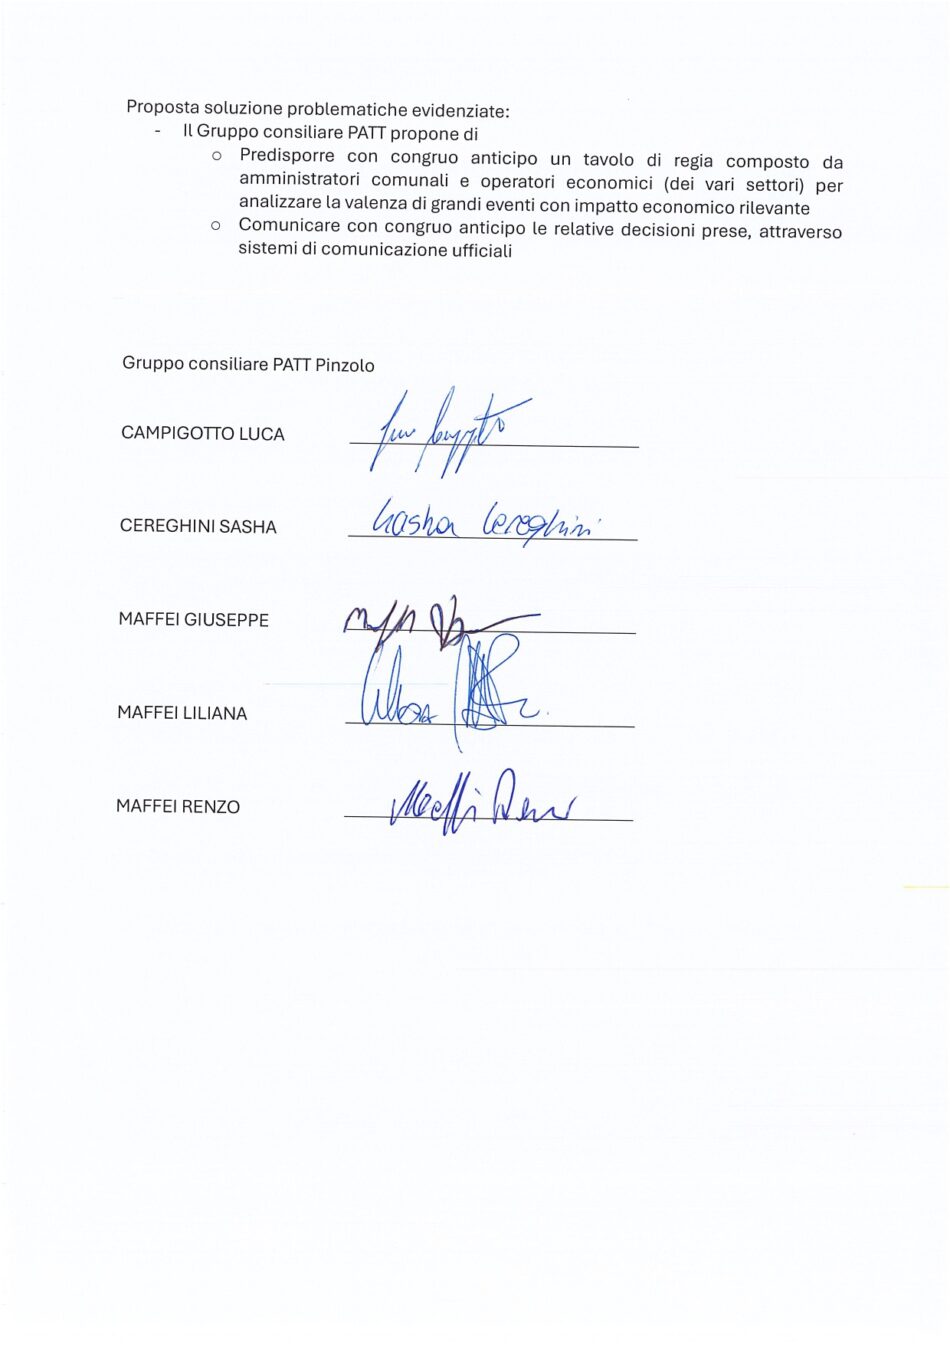 Proposta soluzione problematiche evidenziate:
- Il Gruppo consiliare PATT propone di
o Predisporre con congruo anticipo un tavolo di regia composto da
amministratori comunali e operatori economici (dei vari settori) per
analizzare la valenza di grandi eventi con impatto economico rilevante
o Comunicare con congruo anticipo le relative decisioni prese, attraverso
sistemi di comunicazione ufficiali
Gruppo consiliare PATT Pinzolo
CAMPIGOTTO LUCA
CEREGHINI SASHA Sasha Cereghini
MAFFEI GIUSEPPE
MAFFEI LILIANA
MAFFEI RENZO Maffei Renzo